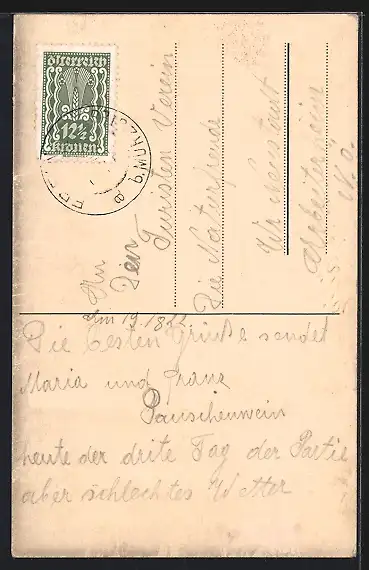 Österreich
12½
Kronen
An
Den
Turisten Verein
Die Naturfreunde
Wr Neustadt
Arbeiterheim
N.Ö.
Am 19. 1822
Die besten Grüße sendet
Maria und Franz
Pauschenwein
heute der drite Tag der Partie
aber schlechtes Wetter